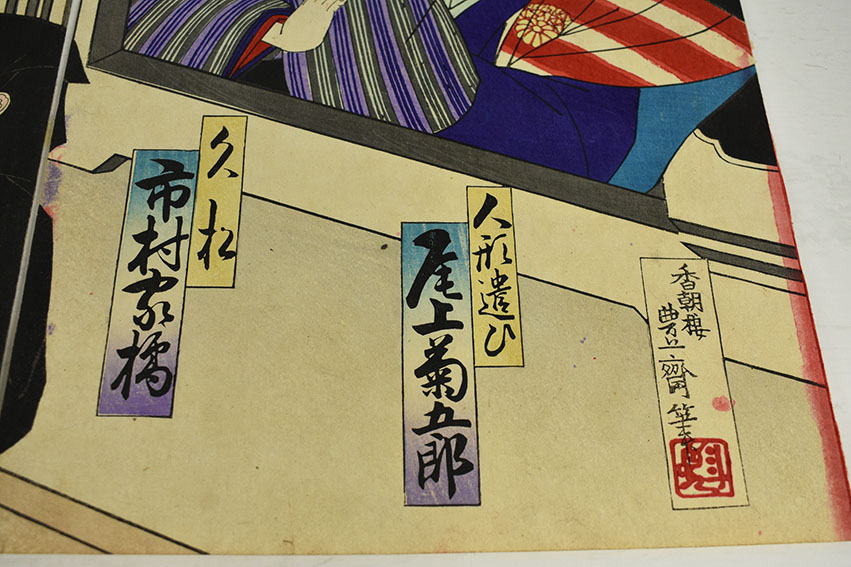 香朝楼
豊斎筆
人形遣ひ
尾上菊五郎
久松
市村家橘